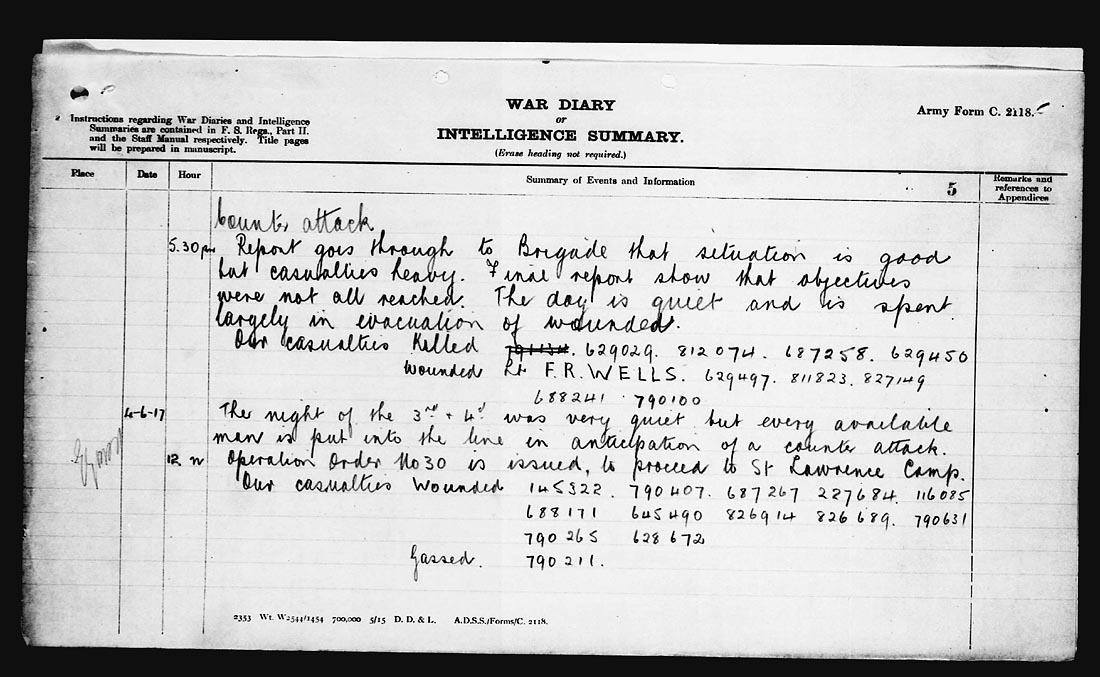 WAR DIARY
or
INTELLIGENCE SUMMARY.
(Erase heading not required.)
Army Form C. 2118.
Instructions regarding War Diaries and Intelligence
Summaries are contained in F. S. Regs., Part II.
and the Staff Manual respectively. Title pages
will be prepared in manuscript.
Place Date Hour Summary of Events and Information 5 Remarks and
references to
Appendices
Counter attack
5.30 pm Report goes through to Brigade that situation is good
but casualties heavy. Final report show that objectives
were not all reached. The day is quiet and is spent
largely in evacuation of wounded.
Our casualties Killed 791134. 629029. 812074. 687258. 629450
Wounded Lt F.R. WELLS. 629497. 811823. 827149
688241 790100
4-6-17 The night of the 3rd + 4th was very quiet but every available
man is put into the line in anticipation of a counter attack.
12 n Operation Order No 30 is issued, to proceed to St Lawrence Camp.
Our casualties Wounded 145322. 790407. 687267 227684. 116085
688171 645490 826914 826689. 790631
790265 628672
Gassed. 790211.
2353 Wt. W2544/1454 700,000 5/15 D. D. & L. A.D.S.S./Forms/C. 2118.